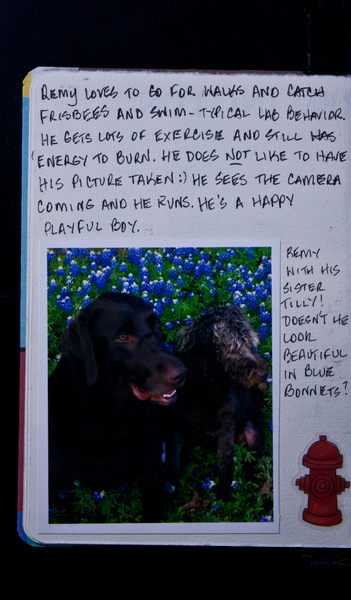 REMY LOVES TO GO FOR WALKS AND CATCH
FRISBEES AND SWIM - TYPICAL LAB BEHAVIOR.
HE GETS LOTS OF EXERCISE AND STILL HAS
ENERGY TO BURN. HE DOES NOT LIKE TO HAVE
HIS PICTURE TAKEN :) HE SEES THE CAMERA
COMING AND HE RUNS. HE'S A HAPPY
PLAYFUL BOY.
REMY
WITH HIS
SISTER
TILLY!
DOESN'T HE
LOOK
BEAUTIFUL
IN BLUE
BONNETS?